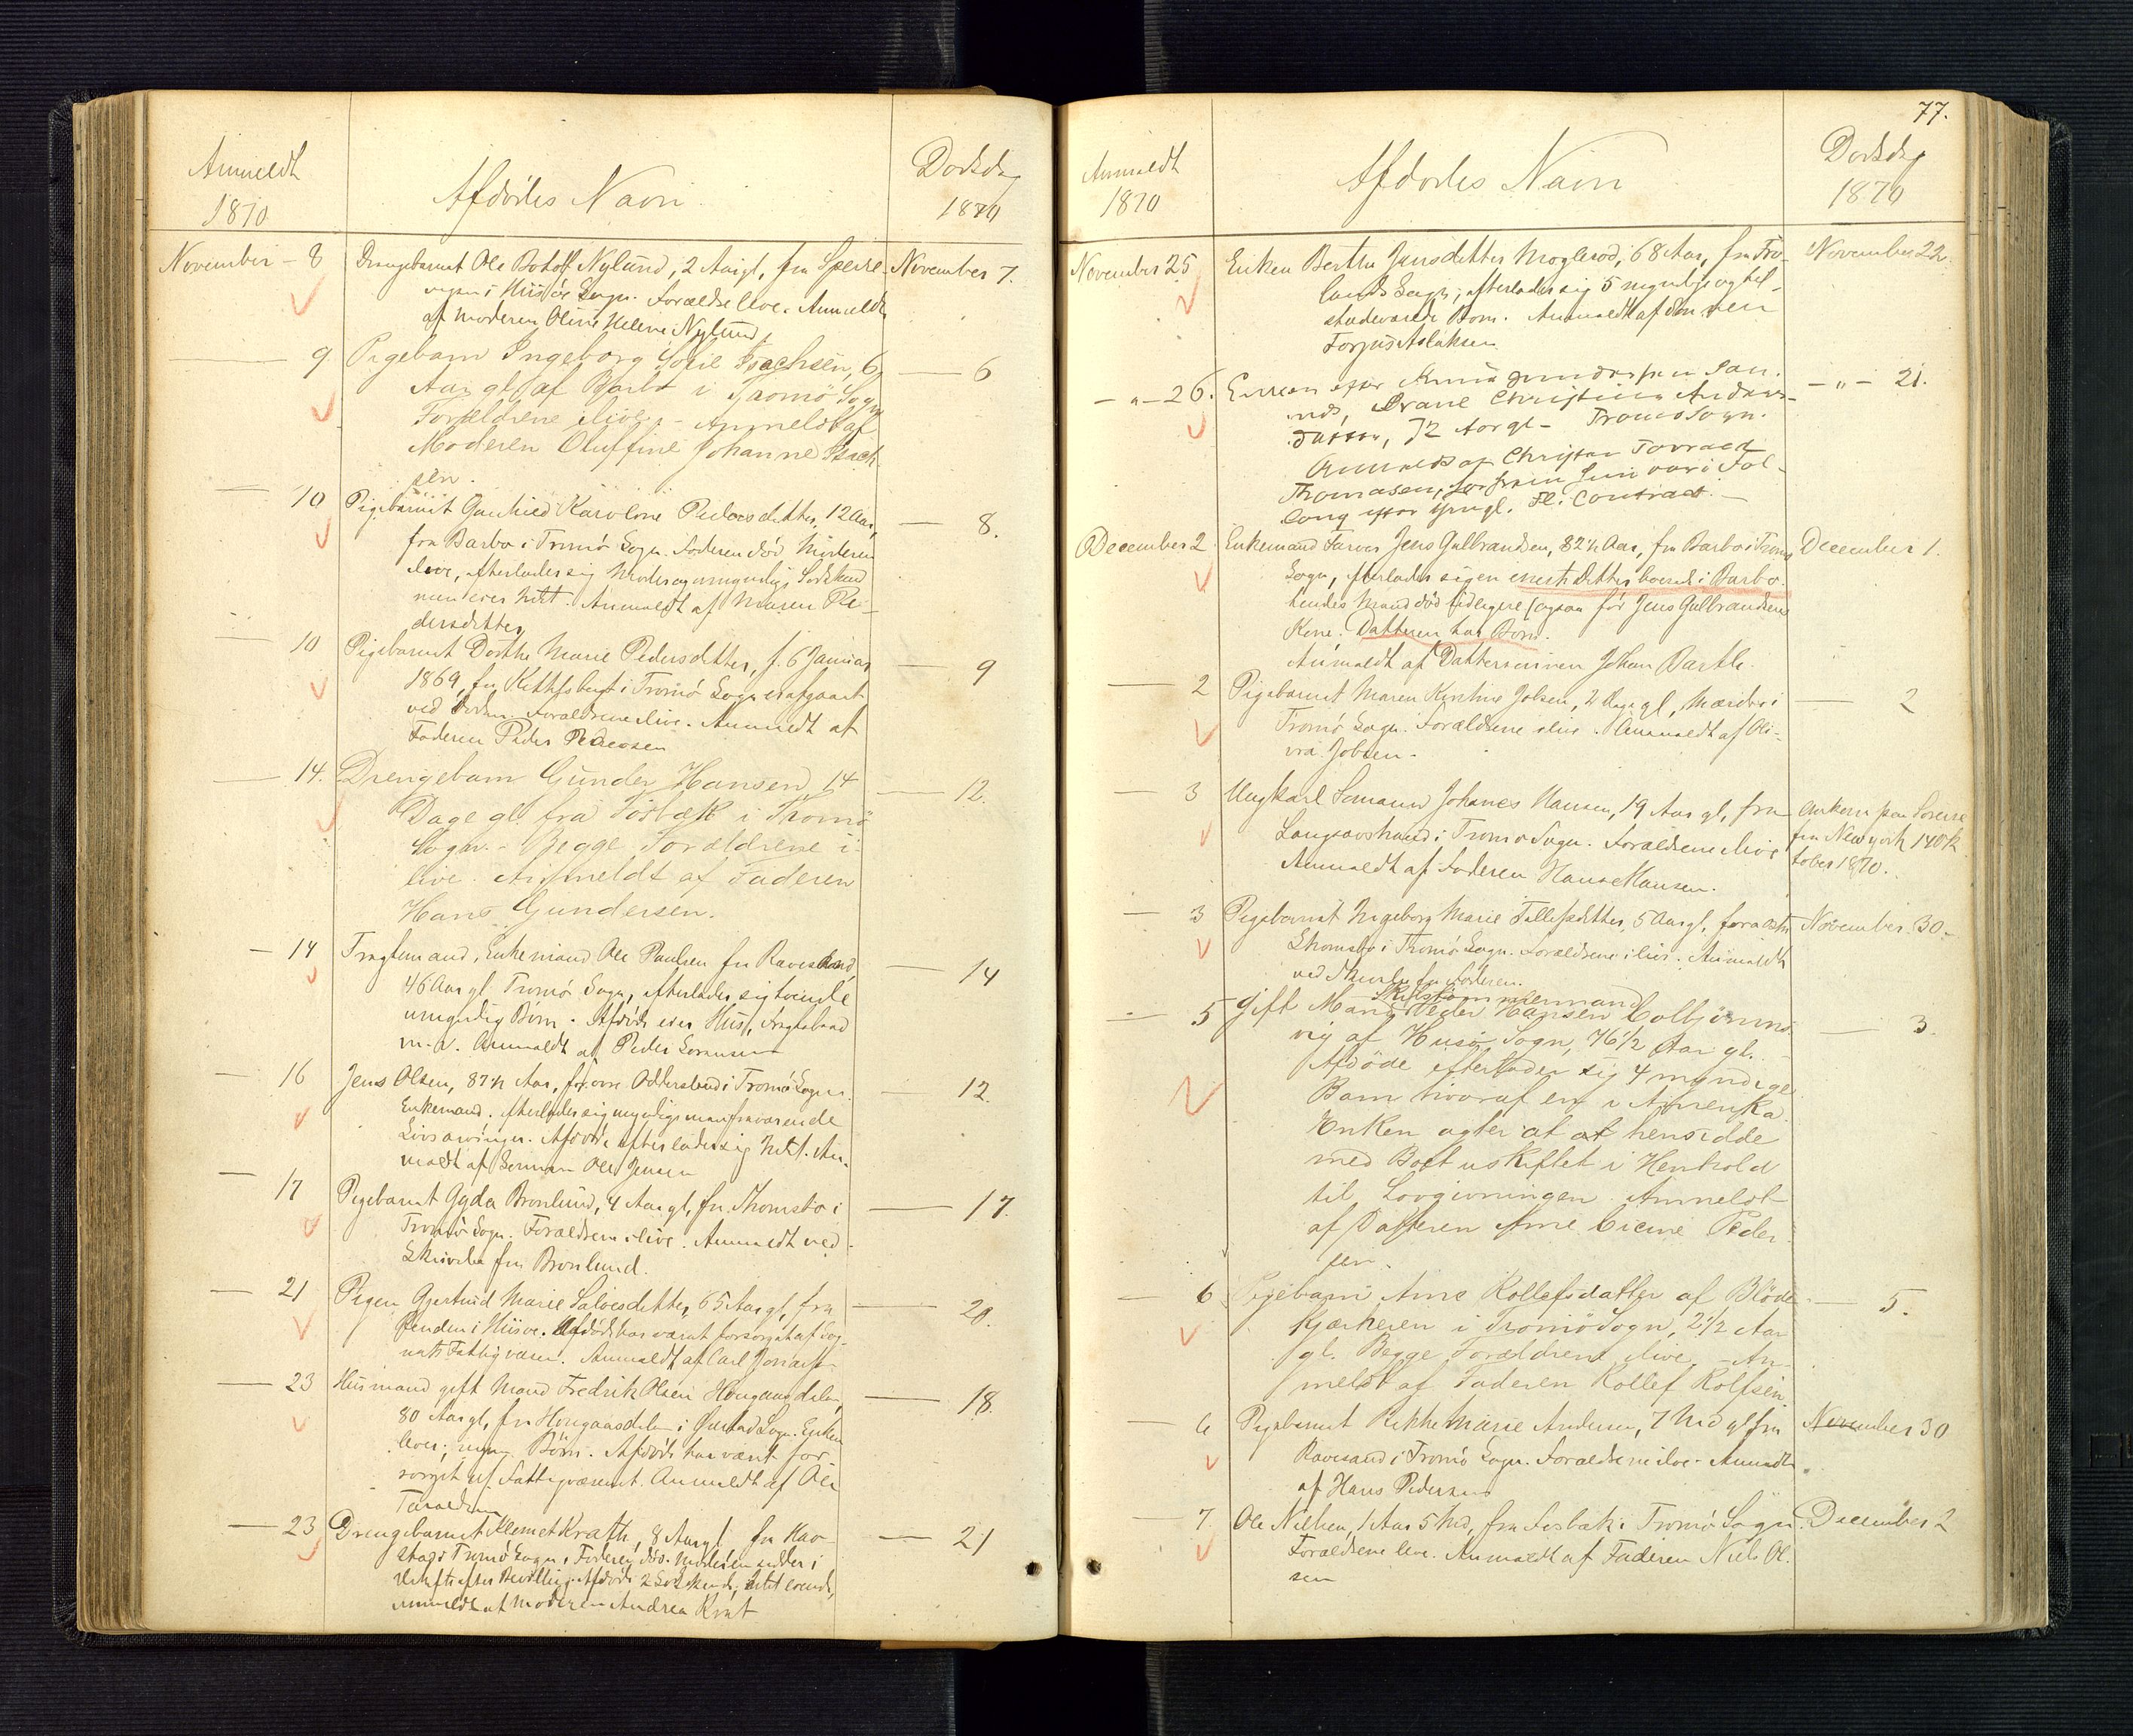 Anmeldt
1870
Afdødes Navn
Dødsdag
1870
November - 8
Drengebarnet Ole Botolf Nylund, 2 Aar gl, fra Speire-
November 7.
vigen i Hiisøe Sogn. Forældre leve. Anmeldt
af Moderen Oline Helene Nylund
9
Pigebarn Ingeborg Sofie Isachsen, 6
6
Aar gl. af Barbo i Tromö Sogn
Forældrene ilive. - Anmeldt af
Moderen Oluffine Johanne Isach
sen.
10
Pigebarnet Gunhild Karoline Pedersdatter, 12 Aar,
8.
fra Barbo i Tromø Sogn. Faderen død Moderen
ilive, efterlader sig Moder og umyndige Sødskend
men eier Intet. Anmeldt af Maren Pe-
dersdatter
10
Pigebarnet Dorthe Marie Pedersdatter, f. 6 Januar
9
1869, fra Kitthsbugt i Tromø Sogn er afgaaet
ved Døden. Forældrene ilive. Anmeldt af
Faderen Peder Pedersen
14.
Drengebarn Gunder Hansen 14
12.
Dage gl. fra Fösbæk i Tromö
Sogn. - Begge Forældrene i
live. Anmeldt af Faderen
Hans Gundersen.
14
Fragtemand, Enkemand Ole Paulsen fra Ravesand,
14
46 Aar gl. Tromø Sogn, efterlader sig tvende
umyndige Børn. Afdøde eier Huus, Fragtebaad
m. v. Anmeldt af Peder Sørensen
16
Jens Olsen, 87½ Aar, fra øvre Oddersland i Tromø Sogn.
12.
Enkemand. Efterlader sig myndige men fraværende
Livsarvinger. Afdøde efterlader sig Intet. An-
meldt af Sønnen Ole Jensen
17
Pigebarnet Gyda Bronlund, 4 Aar gl, fra Thomsbo i
17.
Tromø Sogn. Forældrene ilive. Anmeldt ved
Skrivelse fra Bronlund.
21
Pigen Gjertrud Marie Salvesdatter, 65 Aar gl, fra
20.
Renden i Hiisøe. Afdøde har været forsørget af Sog-
nets Fattigvæsen. Anmeldt af Carl Jonassen
23
Huusmand gift Mand Fredrik Olsen Hougaasdalen,
18.
80 Aar gl, fra Hougaasdalen i Øiestad Sogn. Enken
lever; myn. Börn. Afdøde har været for-
sörget af Fattigvæsenet. Anmeldt af Ole
Taraldsen
23
Drengebarnet Klemet Krafth, 8 Aar gl. fra Hav-
21
stad i Tromø Sogn. Faderen død. Moderen sidder i
Uskifte efter Bevilling. Afdøde 2 Sødskende, Intet eiende,
Anmeldt af Moderen Andrea Kraft
77.
Anmeldt
1870
Afdødes Navn
Dødsdag
1870
November 25
Enken Berthe Jensdatter Moglesød, 68 Aar, fra Frø-
November 22.
lands Sogn, efterlader sig 5 myndige og til-
stedeværende Børn. Anmeldt af Sønnen
Torjus Aslaksen
- " - 26.
Christine Anders-
- " - 21.
datter, 72 Aar gl - Tromø Sogn.
Anmeldt af Christen Tovrad
Thomasen,
Contract.
December 2
Enkemand Farver Jens Gulbrandsen, 82½ Aar, fra Barbo i Tromø
December 1.
Sogn, efterlader sig en eneste Datter boende i Barbo.
hendes Mand død tidligere (ogsaa før Jens Gulbrandsens
Kone. Datteren har Børn.
Anmeldt af Dattersønnen Johan Barth.
2
Pigebarnet Maren Kirstine Jobsen, 2 Dage gl, Mærdø i
2
Tromø Sogn. Forældrene ilive. Anmeldt af Oli-
via Jobsen.
3
Ungkarl Sømand Johanes Hansen, 19 Aar gl, fra
Ankom paa Soreise
Langsævstrand i Tromø Sogn. Forældrene ilive
fra New york 14 Ok
Anmeldt af Faderen Hans Hansen.
tober 1870.
3
Pigebarnet Ingeborg Marie Tellefsdatter, 5 Aar gl, fra
November 30.
Thomsbo i Tromø Sogn. Forældrene i live. Anmeldt
ved Skrivelse fra Faderen.
5
Gift Mand Skibstømmermand Peder Hansen Colbjörns-
3.
vig af Husö Sogn, 76½ Aar gl.
Afdöde efterlader sig 4 myndige
Barn hvoraf en i Amerika.
Enken agter at at hensidde
med Boet uskiftet i Henhold
til Lovgivningen. Anmeldt
af Datteren Ane Cicine Peder-
sen.
6
Pigebarn Ane Kollefsdatter af Blöde-
5.
kjærheien i Tromö Sogn, 2½ Aar
gl. Begge Forældrene ilive. - An-
meldt af Faderen Kollef Rolfsen
6
Pigebarnet Rikke Marie Andersen, 7 Md gl fra
November 30
Ravesand i Tromø Sogn. Forældrene ilive. Anmeldt
af Hans Pedersen
7.
Ole Nielsen, 1 Aar 5 Md, fra Fosbæk i Tromø Sogn.
December 2
Forældrene leve. Anmeldt af Faderen Niels Ol-
sen